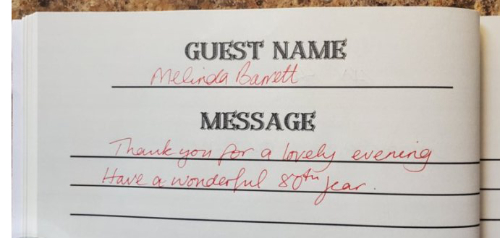 GUEST NAME
Melinda Barrett
MESSAGE
Thank you for a lovely evening
Have a wonderful 80th year.